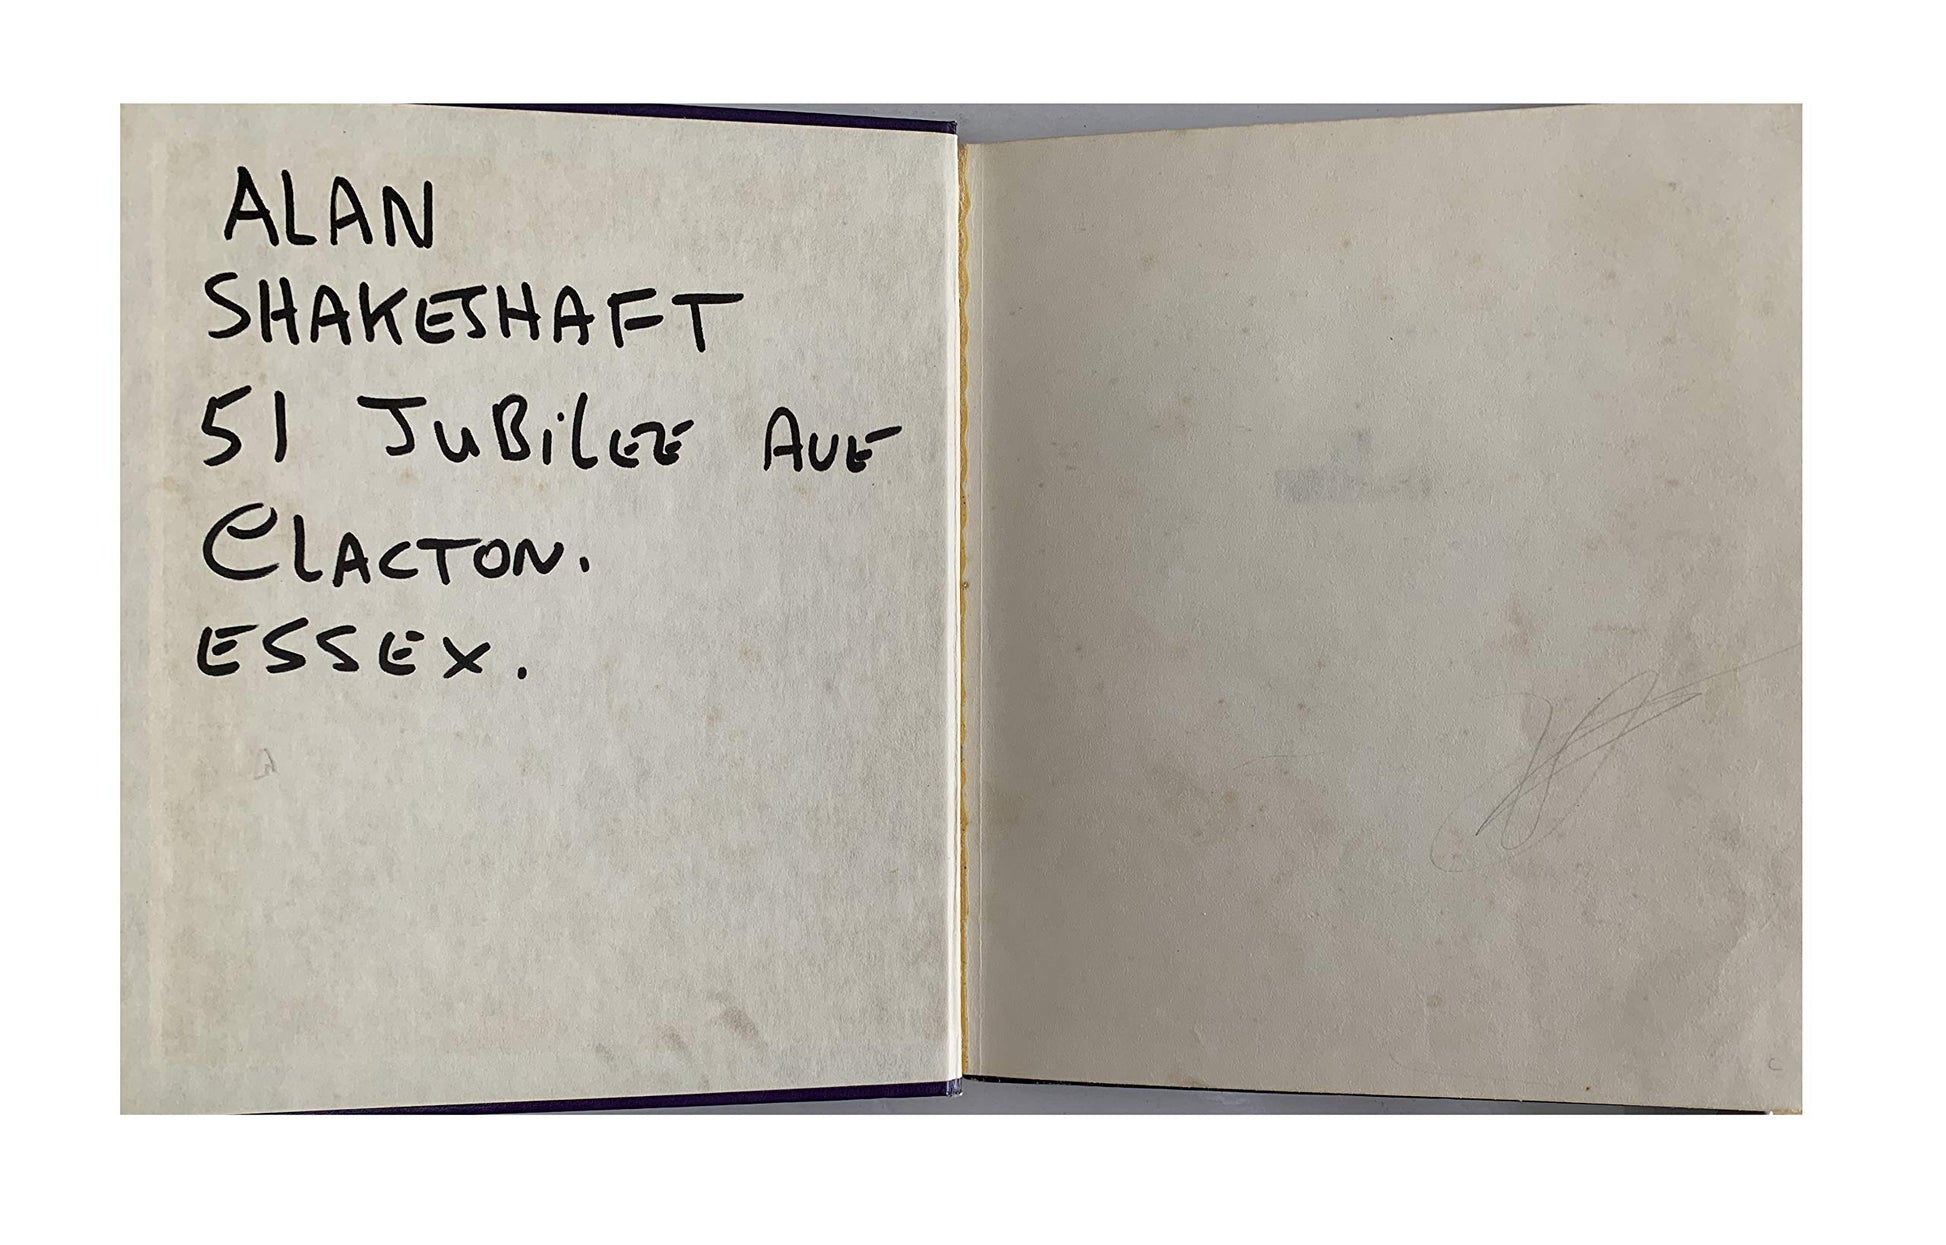 ALAN
SHAKESHAFT
51 JuBiLEE AVE
CLACTON.
ESSEX.